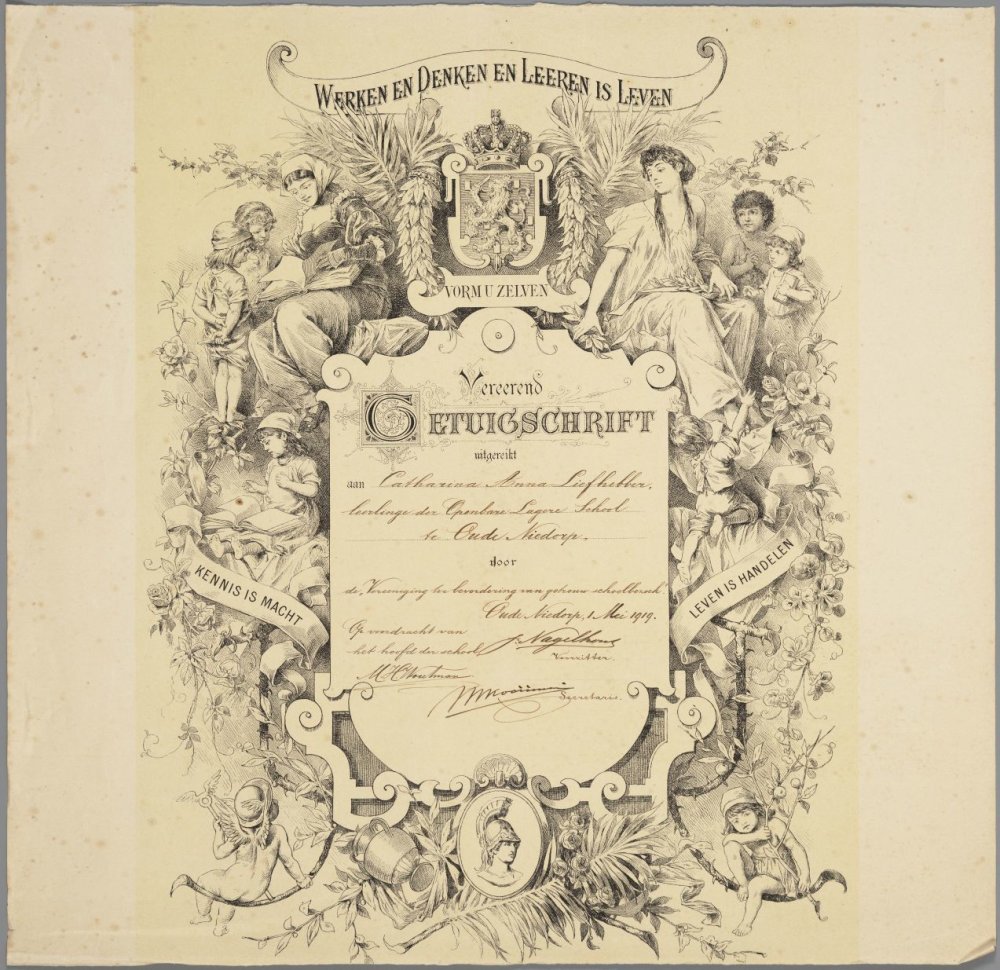 WERKEN EN DENKEN EN LEEREN IS LEVEN
VORM U ZELVEN
Vereerend
GETUIGSCHRIFT
uitgereikt
aan Catharina Anna Liefhebber,
leerlinge der Openbare Lagere School
te Oude Niedorp.
door
de „Vereeniging ter bevordering van getrouw schoolbezoek"
Oude Niedorp, 1 Mei 1919.
Op voordracht van
het hoofd der school,
Voorzitter.
Secretaris.
KENNIS IS MACHT
LEVEN IS HANDELEN